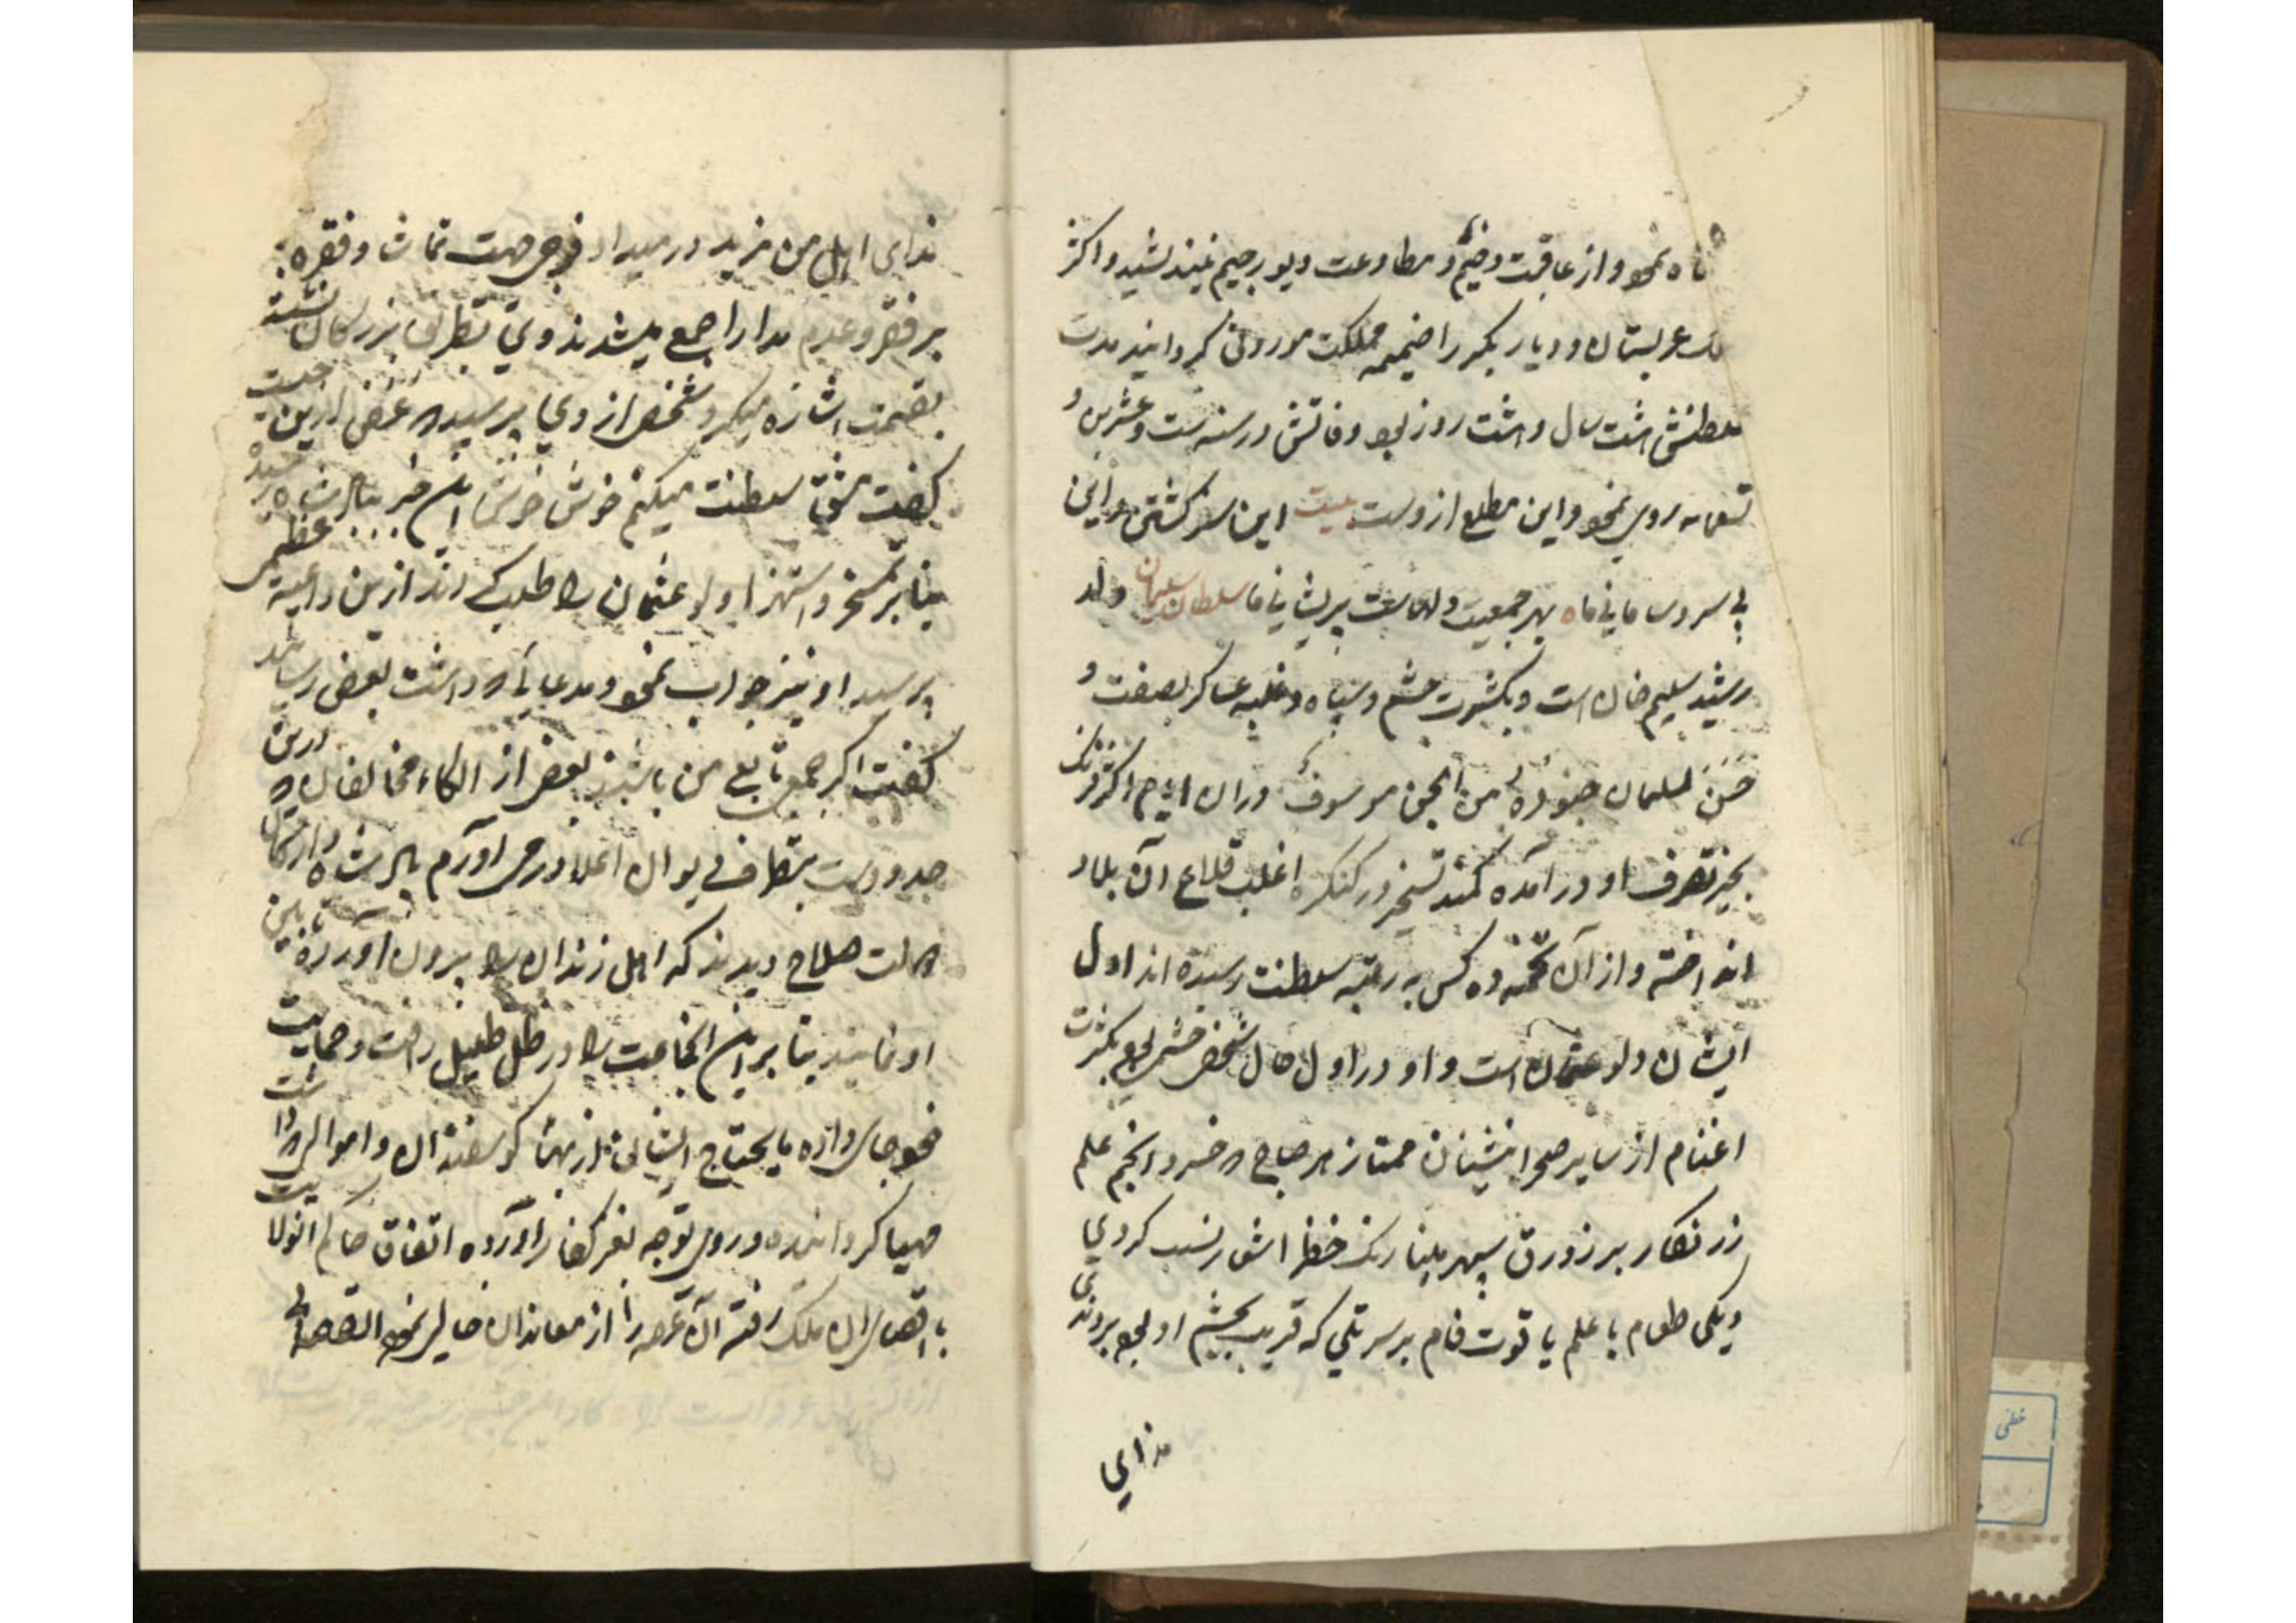 نموو از عاقبت وخیم و مطاوعت دیو رجیم نیندیشید و اکثر
عربستان و دیار بکر را ضمیمه مملکت موروثی گردانید مدت
سلطنتش هشت سال و هشت روز بود وفاتش در سنه ست و عشرین و
تسعمایه روی نمود و این مطلع ازوست بیت این سفر کشتن و این
بی سر و سامانی ما بهر جمعیت دلهاست پریشانی ما سلطان سلیمان ولد
رشید سلیم خان است و بکثرت حشم و سپاه و غلبه عساکر بصفت و
حشر لسلیمان جنوده من الجن موسوف در آن ایام اکثر فرنک
بحیز تصرف او در آمده کمند تسخیر در کنکره اغلب قلاع آن بلاد
انداخته و از آن تخمه ده کس به رتبه سلطنت رسیده اند اول
ایشان ولو عثمان است و او در اول حال شخص حشمی بود بکثرت
اغنام از سایر صحرا نشینان ممتاز هر صباح که خسرو انجم علم
زر نکار بر زورق سپهر مینا رنک خضرا اشار نسب کردی
دیکی طعام با علم یاقوت فام بر سر تلی که قریب بحشم او بود بردندی
ندای
ندای اهل من مزید در میداد فوجی جهت تماشا و فقره
بر فقر و عدم مدارا جمع میشدند وی بطریق بزرکان نشسته
بقیمت اشاره میکرد شخصی از وی پرسید که غرض ازین چیست
کفت مشق سلطنت میکنم خوش خوش این خبر بپادشاه رسید
بنابر تمسخر و استهزا ولو عثمان را طلب کردند ازین داعیه عظمی
پرسید او نیز جواب نمود و مدعایی که داشت بعرض رسانید
کفت اکر جمعی تابع من باشند بعضی از الکاء مخالفان که درین
حدوداست بتصرف دیوان اعلا در می آورم پادشاه و ارکان
دولت صلاح دیدند که اهل زندان را بیرون آورده تابین
او نمایند بنابر این انجماعت را در ظل ظلیل رافت و حمایت
خود جای داده ما یحتاج ایشان از بهای کوسفندان و اموالی که داشت
مهیا کردانیده و روی توجه بغز کفار آورده اتفاق حاکم انولایت
باقصای آن ملک رفته آن عرصه را از معاندان خالی نمود القصه